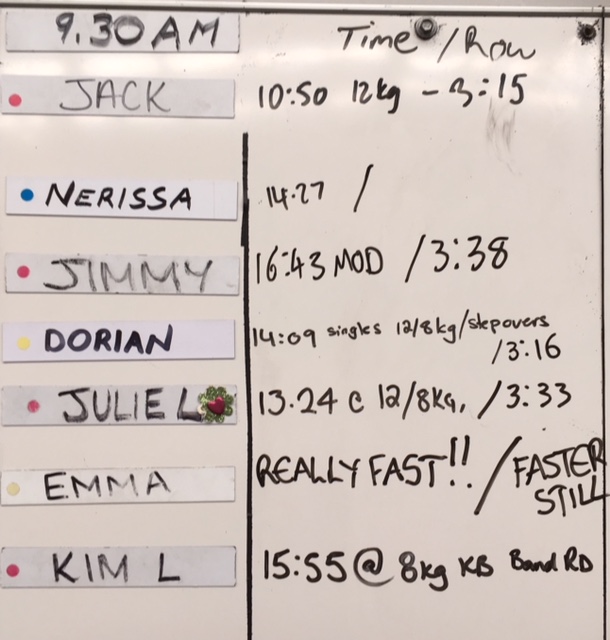 9.30 AM Time /Row
JACK 10:50 12kg - 3:15
NERISSA 14:27 /
JIMMY 16:43 MOD /3:38
DORIAN 14:09 singles 12/8kg/stepovers
/3:16
JULIE L 13.24 c 12/8kg, /3:33
EMMA REALLY FAST!! / FASTER
STILL
KIM L 15:55 @ 8kg KB Band RD